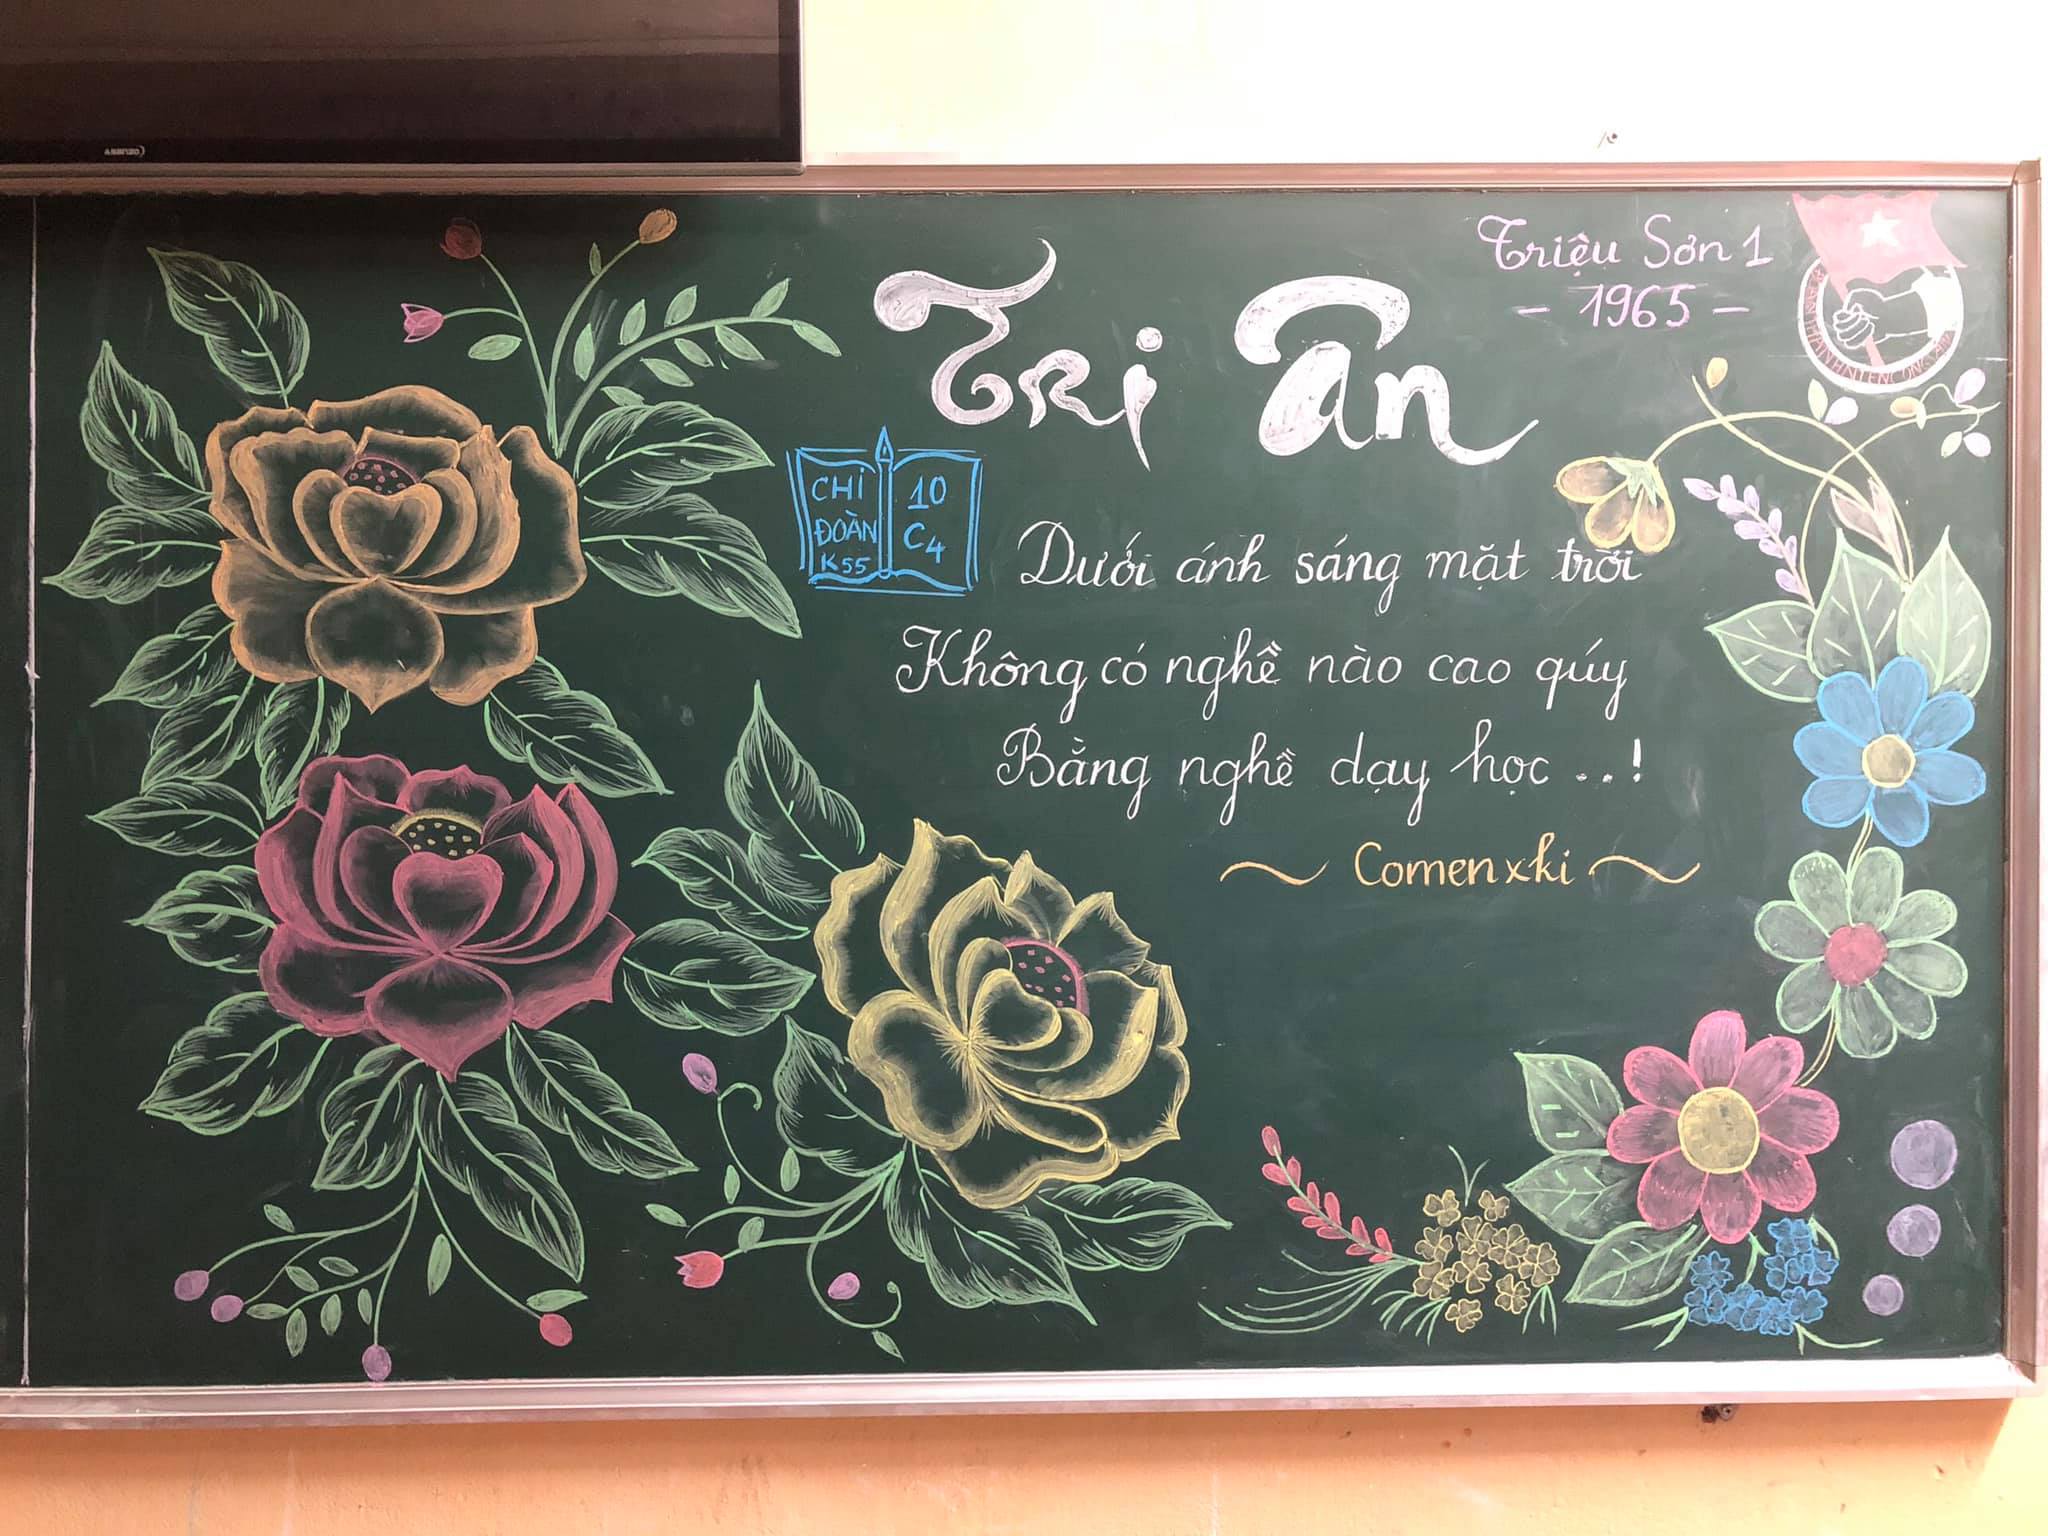 asanzo
Triệu Sơn 1
- 1965 -
Tri Ân
CHI
ĐOÀN
K55
10
C4
Dưới ánh sáng mặt trời
Không có nghề nào cao qúy
Bằng nghề dạy học ...!
~ Comenxki ~